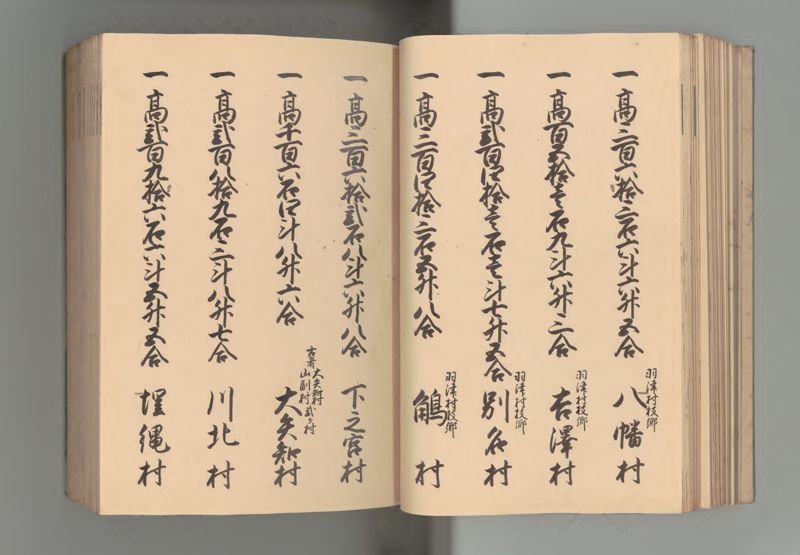 一 高三百六拾三石六斗六升五合 羽津村枝郷 八幡村
一 高百五拾壱石九斗六升三合 羽津村枝郷 吉澤村
一 高弐百四拾壱石壱斗七升五合 羽津村枝郷 別名村
一 高三百四拾三石五升八合 羽津村枝郷 鵤村
一 高三百六拾弐石八斗六升八合 下之宮村
一 高千百六石四斗八升六合 古者 大矢知村 山副村 弐ヶ村 大矢知村
一 高弐百八拾九石三斗八升七合 川北村
一 高弐百九拾六石六斗五升五合 埋縄村